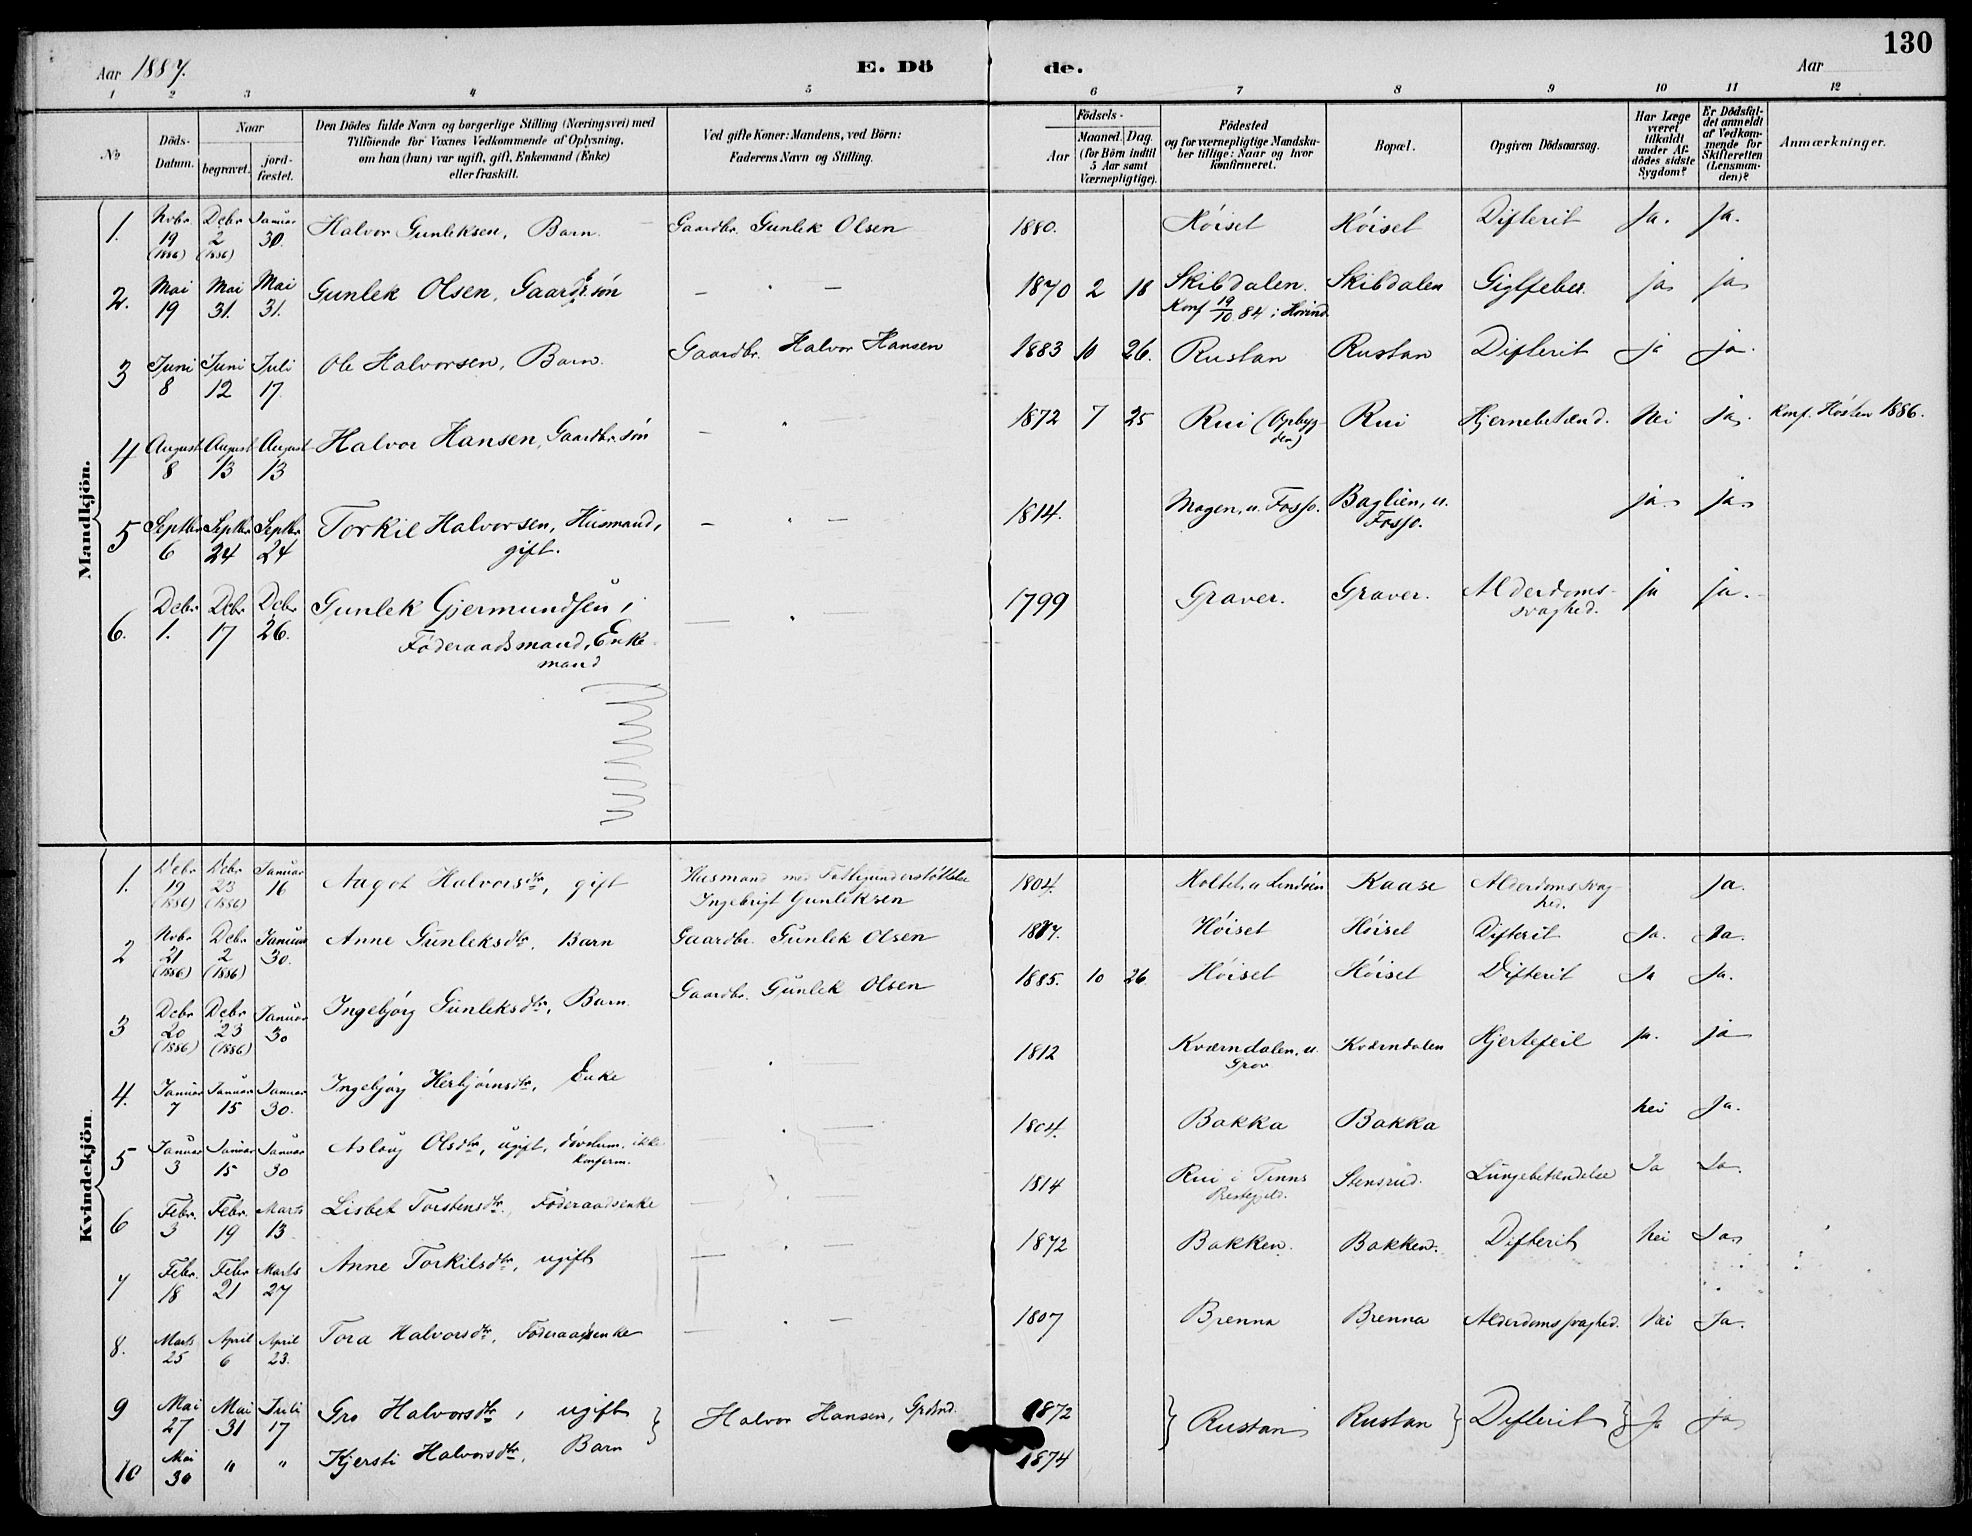 130
Aar 1887. E. Dö de. Aar
1 2 3 4 5 6 7 8 9 10 11 12
No
Döds-Datum.
Naar
begravet.
jord-fæstet.
Den Dödes fulde Navn og borgerlige Stilling (Næringsvei) med
Tilföiende for Voxnes Vedkommende af Oplysning,
om han (hun) var ugift, gift, Enkemand (Enke)
eller fraskilt.
Ved gifte Koner: Mandens, ved Börn:
Faderens Navn og Stilling.
Födsels-
Aar
Maaned. Dag.
(for Börn indtil
5 Aar samt
Værnepligtige).
Födested
og for værnepligtige Mandska-
ber tillige: Naar og hvor
konfirmeret.
Bopæl.
Opgiven Dödsaarsag.
Har Læge
været
tilkaldt
under Af-
dödes sidste
Sygdom?
Er Dödsfal-
det anmeldt
af Vedkom-
mende for
Skifteretten
(Lensman-
den)?
Anmærkninger.
Mandkjön.
1. Novbr 19 (1886) Debr 2 (1886) Januar 30. Halvor Gunleksen, Barn. Gaardbr. Gunlek Olsen 1880. Höiset Höiset Difterit Ja. Ja.
2. Mai 19 Mai 31. Mai 31. Gunlek Olsen, Gaardbr.søn — " — 1870 2 18 Skibdalen. Skibdalen Gigtfeber. ja ja
Konf 19/10 84 i Hovind.
3 Juni 8 Juni 12 Juli 17. Ole Halvorsen, Barn. Gaardbr. Halvor Hansen 1883 10 26. Rustan Rustan Difterit ja ja.
4 August 8 August 13 August 13 Halvor Hansen, Gaardbr.søn — " 1872 7 25 Rui (Opbyg-
den) Rui Hjernebetænd. Nei ja. Konf. Høsten 1886.
5 Septbr 6 Septbr 24 Septbr 24 Torkil Halvorsen, Husmand, — " — 1814. Mogen, u. Fosso. Baglien, u.
Fosso. ja. ja.
gift.
6. Debr 1. Debr 17 Debr 26. Gunlek Gjermundsen, — " — 1799 Graver. Graver. Alderdoms-
svaghed. ja ja.
Føderaadsmand, Enke-
mand
Kvindekjön.
1. Debr 19 (1886) Debr 23 (1886) Januar 16 Aagot Halvorsdtr, gift Husmand med Fattigunderstøttelse
Ingebrigt Gunleksen 1804. Holtet, u. Kaase Alderdomssvag-
hed. Ja.
2 Novbr 21 (1886) Debr 2 (1886) Januar 30. Anne Gunleksdtr, Barn Gaardbr. Gunlek Olsen Höiset Höiset Difterit Ja. Ja.
3 Debr 20 (1886) Debr 23 (1886) Januar 30 Ingebjørg Gunleksdtr, Barn. Gaardbr. Gunlek Olsen 1885. 10 26 Höiset Höiset Difterit Ja Ja.
4. Januar 7 Januar 15 Januar 30. Ingebjørg Herbjørnsdtr, Enke " 1812 Kværndalen, u.
Grov Kværndalen Hjertefeil ja. ja
5 Januar 3 Januar 15 Januar 30 Aslaug Olsdtr, ugift, døvstum. ikke
konfirm. " — 1804. Bakka Bakka nei Ja.
6 Febr. 3 Febr. 19 Marts 13. Lisbet Torstensdtr, Føderaadsenke — " — 1814 Rui i Tinns
Prestegjeld. Stensrud. Lungebetændelse Ja Ja.
7 Febr. 18 Febr 21 Marts 27 Anne Torkilsdtr, ugift — " — 1872 Bakken. Bakken. Difterit nei Ja
8. Marts 25 April 6 April 23. Tora Halvorsdtr, Føderaadsenke — " — 1807 Brenna Brenna Alderdomssvaghed. Nei Ja.
9 Mai 27 Mai 31 Juli 17 Gro Halvorsdtr, ugift Halvor Hansen, Grbrd. 1872 Rustan Rustan Difterit Ja ja
10 Mai 30 " " Kjersti Halvorsdtr, Barn 1874